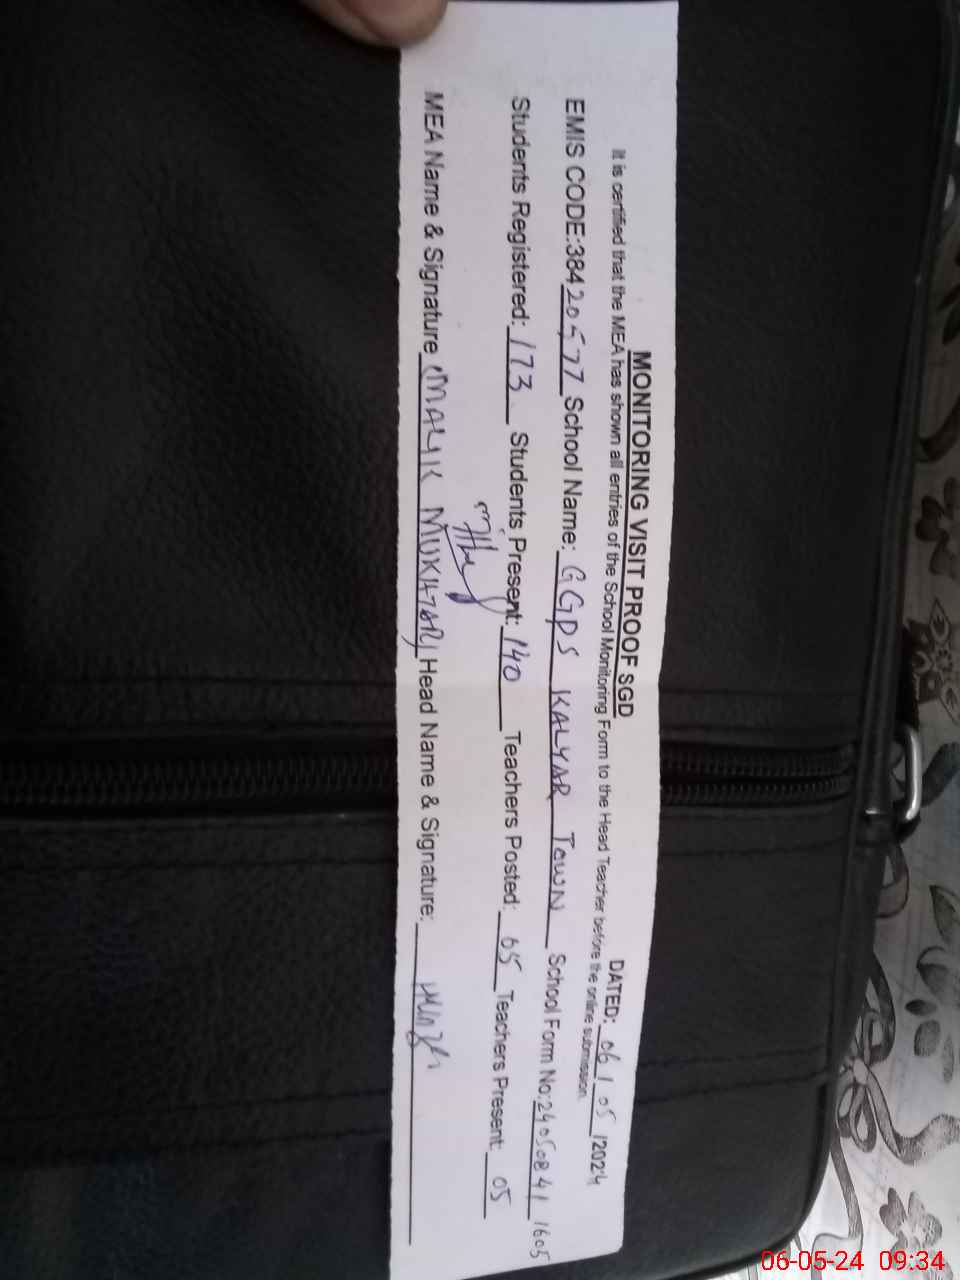 MONITORING VISIT PROOF SGD
DATED: 06/05/2024
It is certified that the MEA has shown all entries of the School Monitoring Form to the Head Teacher before the online submission.
EMIS CODE:38420577 School Name: GGPS KALYAR TOWN School Form No:240508411605
Students Registered: 173 Students Present: 140 Teachers Posted: 05 Teachers Present: 05
MEA Name & Signature MALIK MUKHTAR Head Name & Signature:
06-05-24 09:34